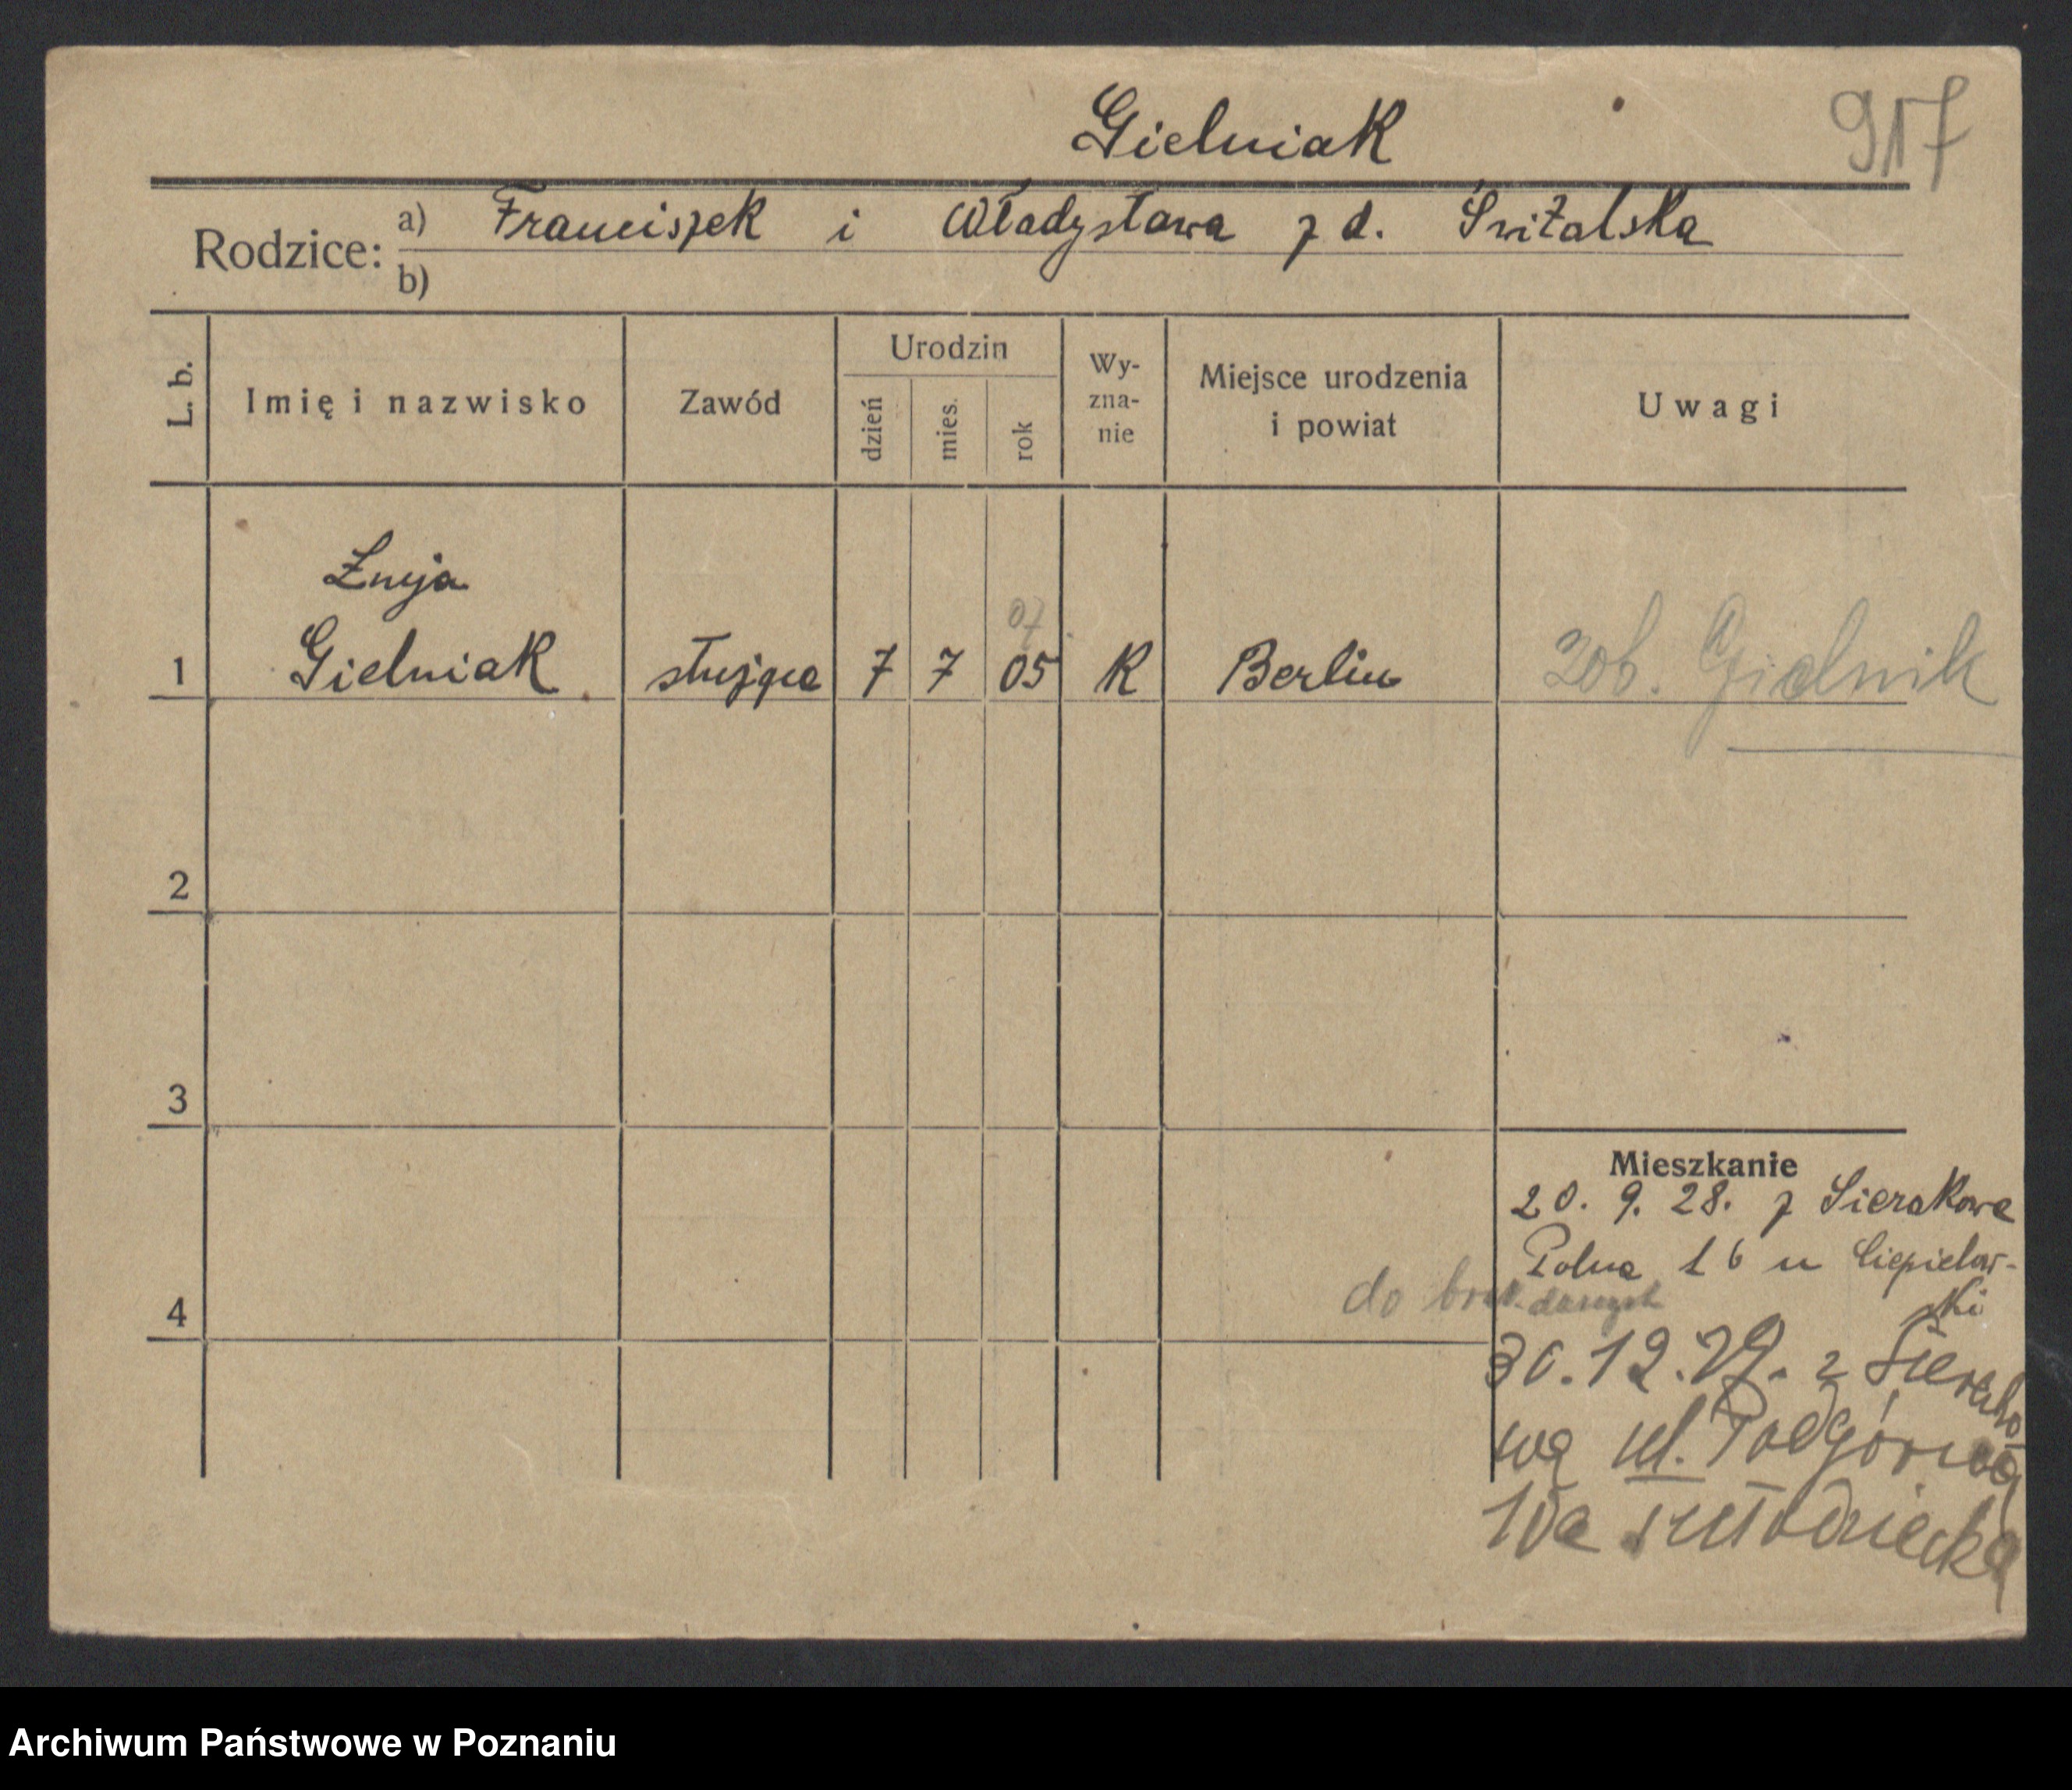 Gielniak
917
Rodzice: a) Franciszek i Władysława z d. Świtalska
b)
L. b.
Imię i nazwisko
Zawód
Urodzin
dzień
mies.
rok
Wy-
zna-
nie
Miejsce urodzenia
i powiat
Uwagi
Łucja
07
1 Gielniak służąca 7 7 05 K Berlin zob. Gielnik
2
3
Mieszkanie
20. 9. 28. z Sierakowa
Polna 16 u Ciepielow-
ski
do
4
30.12.29. z Sierako-
wa ul. Podgórna
10a